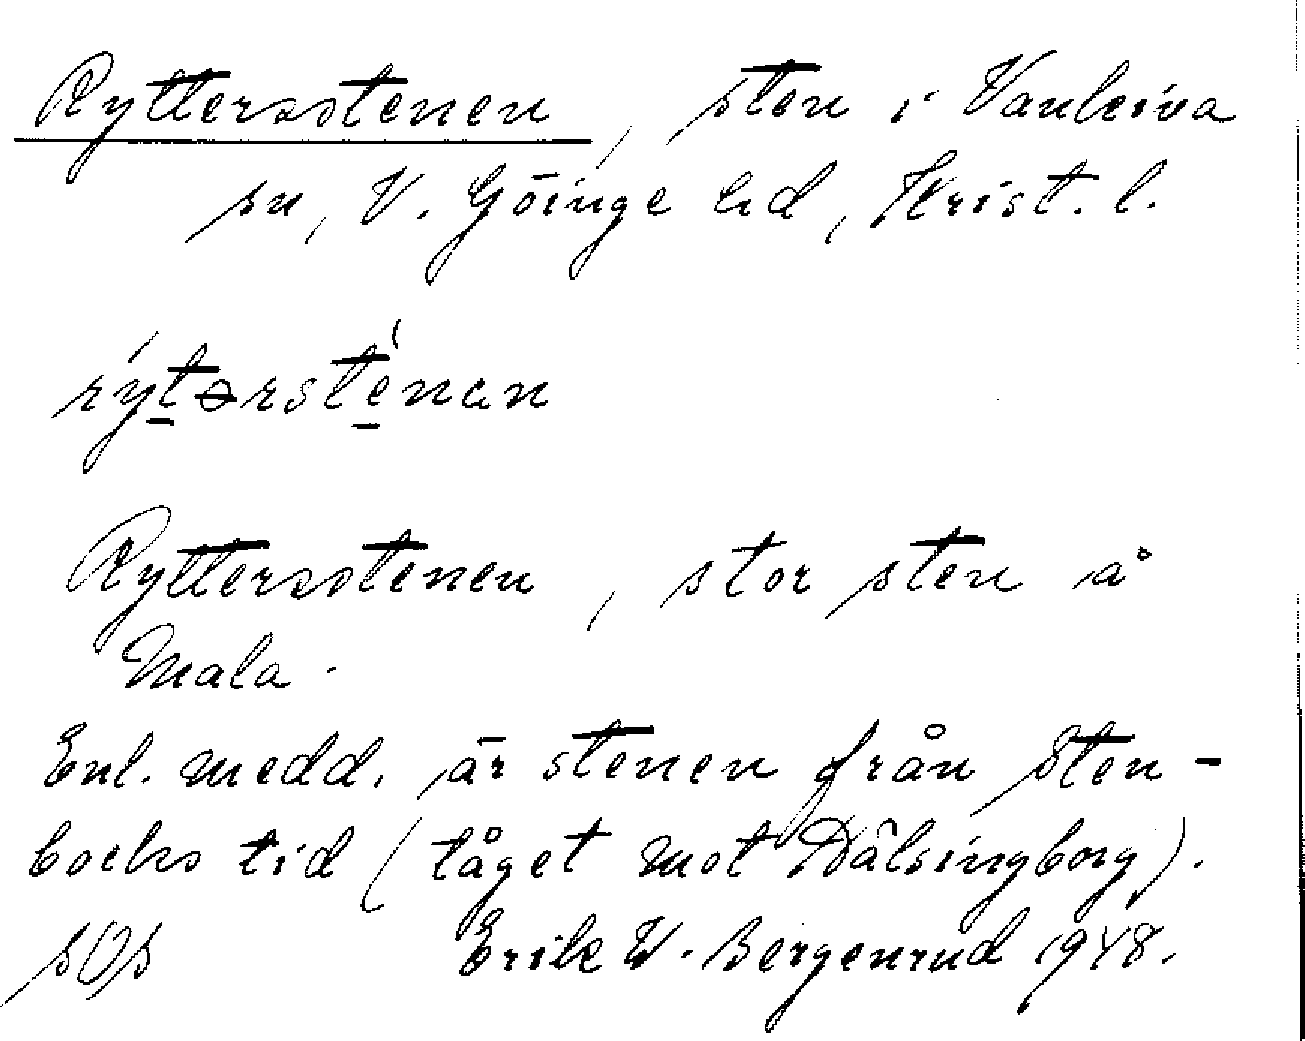 Ryttersstenen, sten i Vankiva
sn, V. Göinge hd, Krist. l.
rýtərstènan
Ryttersstenen, stor sten å
Mala.
Enl. medd. är stenen från Sten-
bocks tid (tåget mot Hälsingborg).
Erik W. Bergenrud 1948.